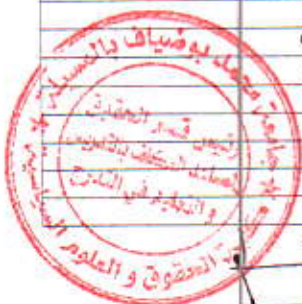 جامعة محمد بوضياف بالمسيلة
كلية الحقوق و العلوم السياسية
رئيس قسم الحقوق
المساعد المكلف بالتدريس
و التعليم في التدرج